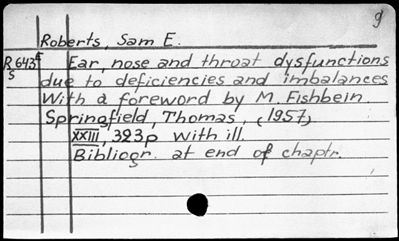 g
Roberts, Sam E.
R643f Ear, nose and throat dysfunctions
s due to deficiencies and imbalances
With a foreword by M. Fishbein.
Springfield, Thomas, (1957)
XXIII, 323p with ill.
Bibliogr. at end of chaptr.